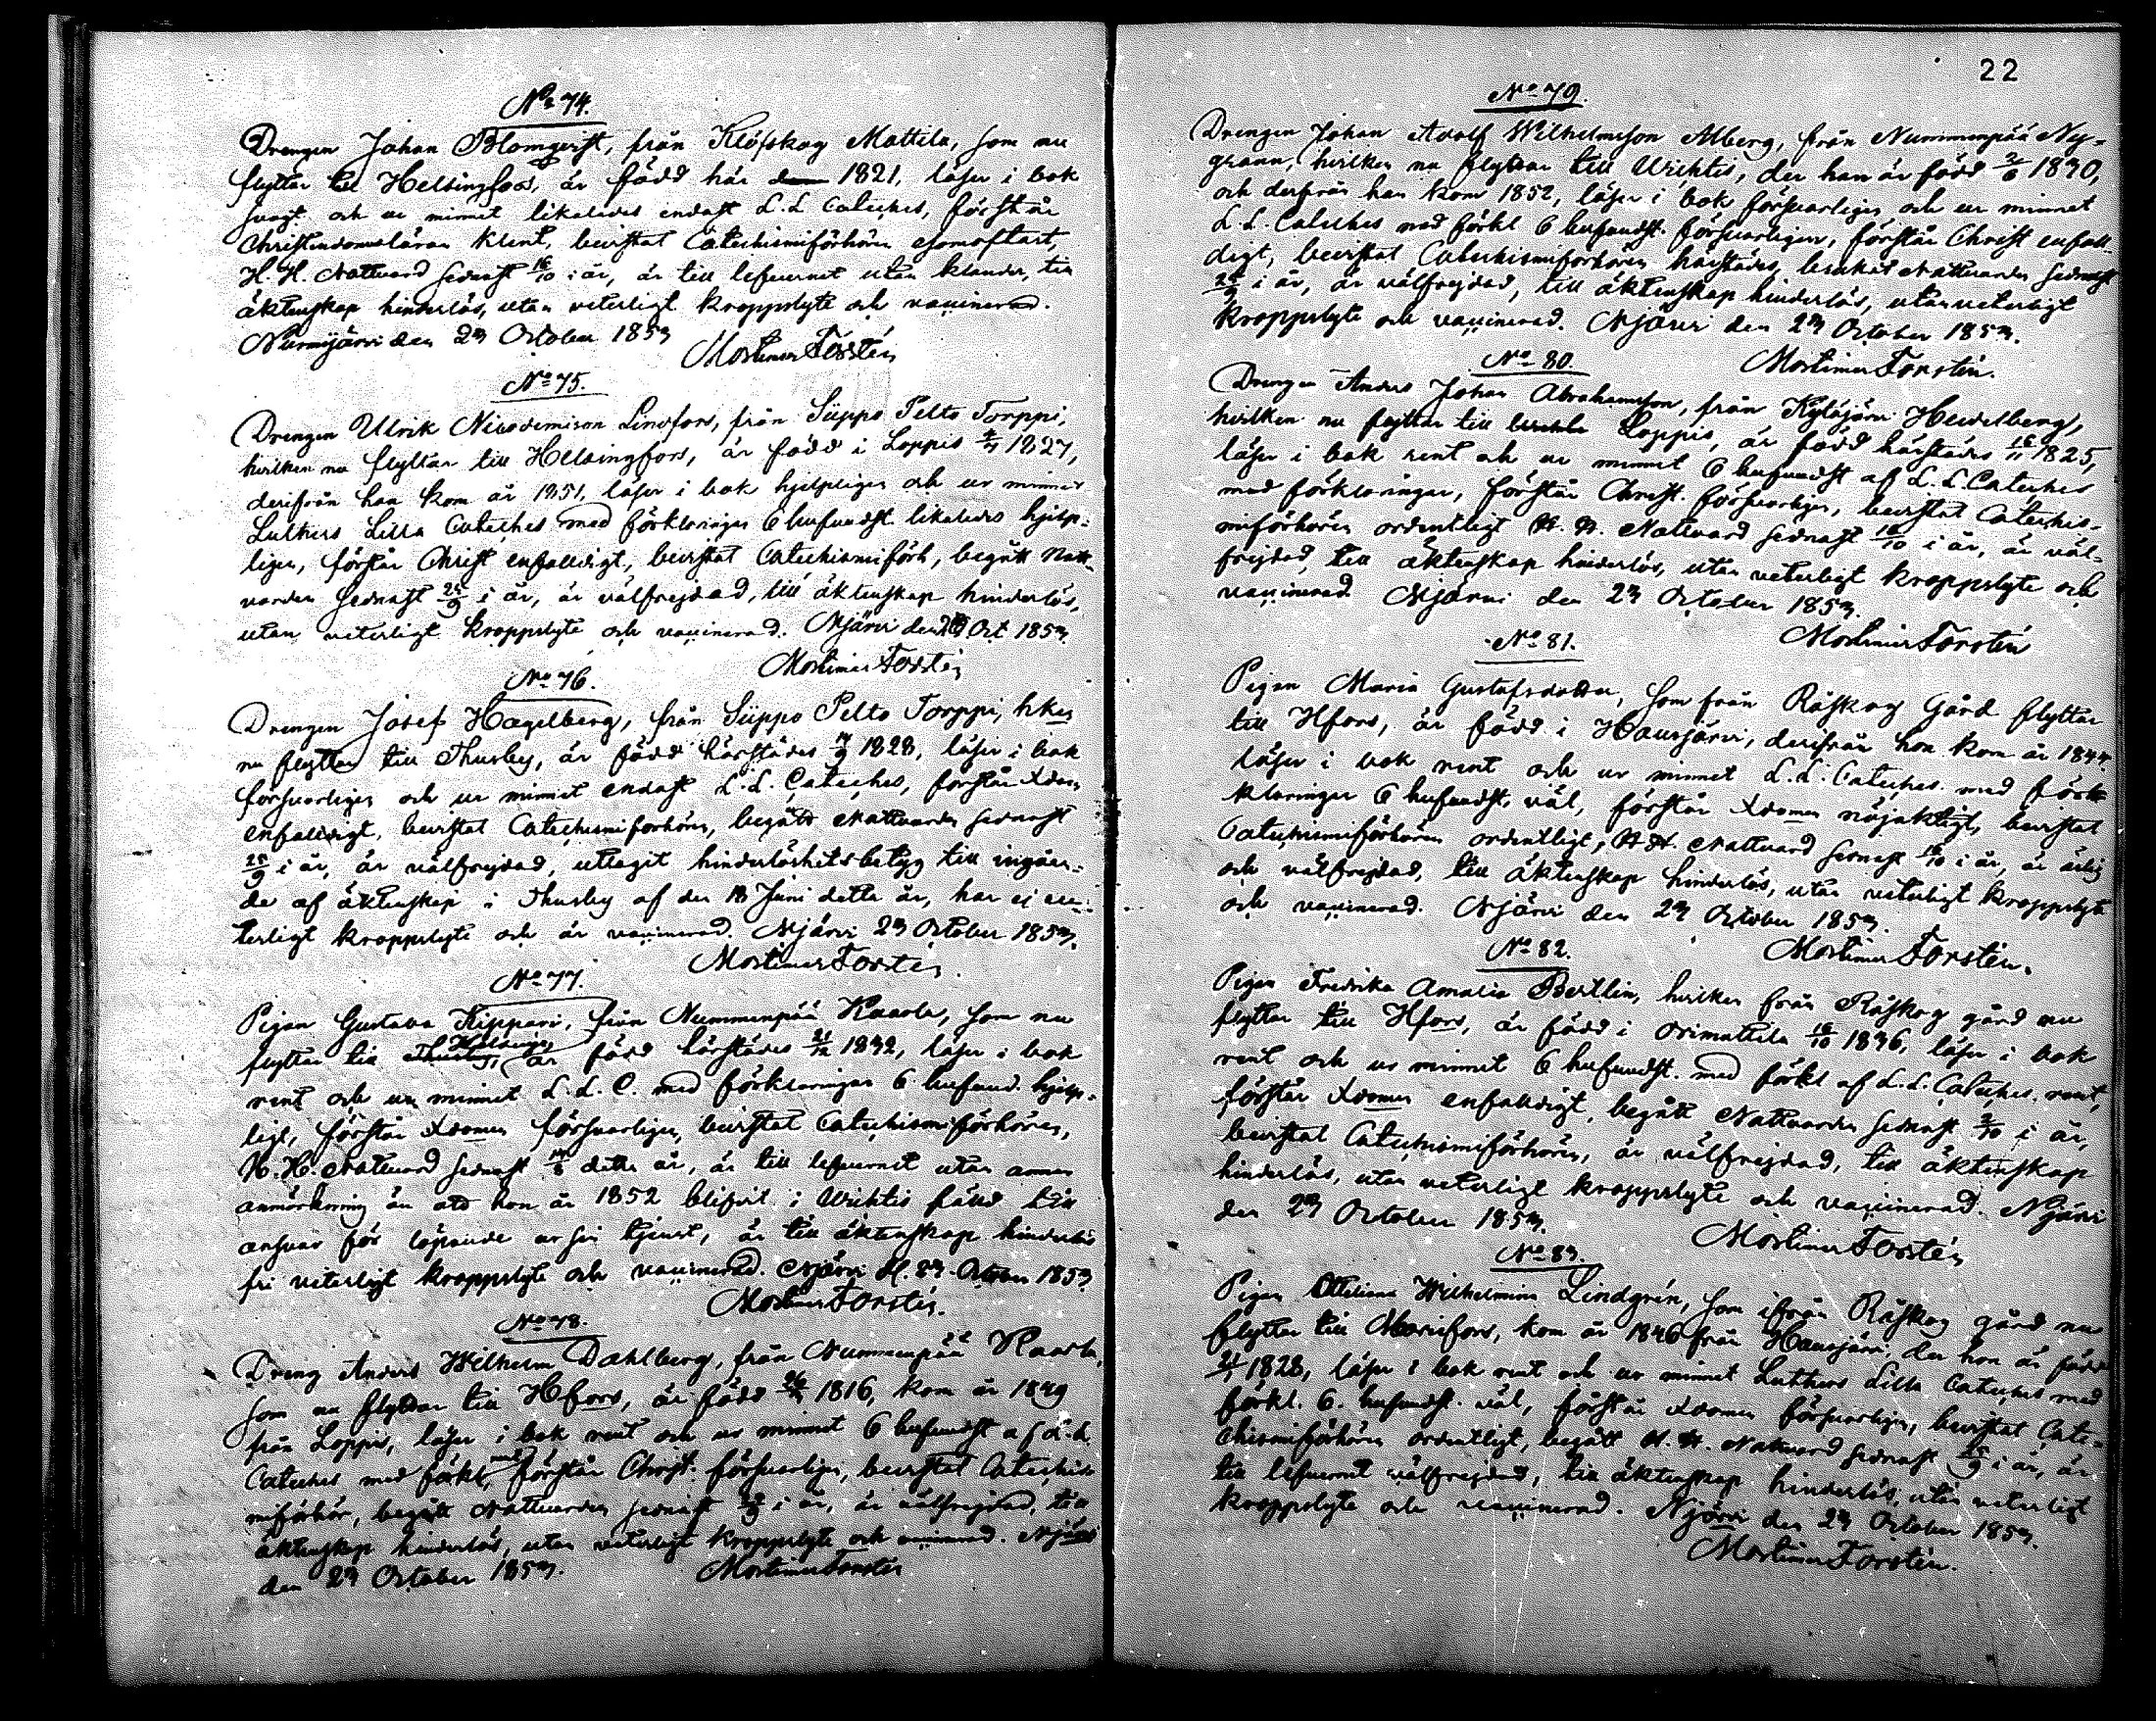 No 74.
Drengen Johan Blomqvist, från Klöfskog Mattila, som nu
flyttar till Helsingfors, är född här 1821, läser i bok
svagt och ur minnet likaledes endast L. L Cateches, förstår
Christendomsläran klent, bevistat Catechismiförhören esomoftast,
H. H. Nattvard sednast 16/10 i år, är till lefvernet utan klander, till
äktenskap hinderlös, utan veterligt kroppslyte och vaccinerad.
Nurmijärvi den 23 October 1853
Mortimer Forstén
No 75.
Drengen Ulrik Nicodemison Lindfors, från Siippo Pelto Torppi,
hvilken nu flyttar till Helsingfors, är född i Loppis 1827,
derifrån han kom år 1851, läser i bok hjelpligen och ur minnet
Luthers Lilla Cateches med förklaringar 6 hufvudst. likaledes hjelp-
ligen, förstår Christ enfalldigt, bevistat Catechismiförh, begått Natt-
varden sednast 25/9 i år, är välfrejdad, till äktenskap hinderlös,
utan veterligt kroppslyte och vaccinerad. Njärvi den 23 Oct 1853.
Mortimer Forstén
No 76.
Drengen Josef Hagelberg, från Siippo Pelto Torppi, hken
nu flyttar till Thusby, är född härstädes 1828, läser i bok
försvarligen och ur minnet endast L. L. Cateches, förstår Xdom
enfalldigt, bevistat Catechismiförhören, begått Nattvarden sednast
25/9 i år, är välfrejdad, uttagit hinderlöshetsbetyg till ingåen-
de af äktenskap i Thusby af den 18 Juni detta år, har ej ve-
terligt kroppslyte och är vaccinerad. Njärvi 23 October 1853.
Mortimer Forstén.
No 77.
Pigan Gustava Kippari, från Nummenpää Kaarla, som nu
flyttar till Thusby, är född härstädes 1832, läser i bok
rent och ur minnet L. L. C. med förklaringar 6 hufvud. hjelp-
ligt, förstår Xdomen försvarligen, bevistat Catechismiförhören,
H. H. Nattvard sednast detta år, är till lefvernet utan annan
anmärkning än att hon år 1852 blifvit i Wichtis fälld till
ansvar för löpande ur sin tjenst, är till äktenskap hinderlös
fri veterligt kroppslyte och vaccinerad. Njärvi d. 23. October 1853
Mortimer Forstén.
No 78.
Dreng Anders Wilhelm Dahlberg, från Nummenpää Kaarla,
som nu flyttar till Hfors, är född 1816, kom år 1849
från Loppis, läser i bok rent och ur minnet 6 hufvudst af L. L.
Cateches med förkl, förstår Christ. försvarligen, bevistat Catechis-
miförhör, begått Nattvarden sednast i år, är välfrejdad, till
äktenskap hinderlös, utan veterligt kroppslyte och vaccinerad. Njärvi
den 23 October 1853.
Mortimer Forstén
22
No 79.
Drengen Johan Adolf Wilhelmsson Alberg, från Nummenpää Ny-
grann, hvilken nu flyttar till Wichtis, der han är född 1830,
och derifrån han kom 1852, läser i bok försvarligen och ur minnet
L. L. Cateches med förkl 6 hufvudst. försvarligen, förstår Christ enfall-
digt, bevistat Catechismiförhören härstädes, brukat Nattvarden sednast
25/9 i år, är välfrejdad, till äktenskap hinderlös, utan veterligt
kroppslyte och vaccinerad. Njärvi den 23 October 1853.
Mortimer Forstén.
No 80.
Drengen Anders Johan Abrahamsson, från Kyläjärvi Heidelberg,
hvilken nu flyttar till Loppis, är född härstädes 1825,
läser i bok rent och ur minnet 6 hufvudst af L. L. Cateches
med förklaringar, förstår Christ. försvarligen, bevistat Catechis-
miförhören ordentligt H. H. Nattvard sednast 16/10 i år, är väl-
frejdad, till äktenskap hinderlös, utan veterligt kroppslyte och
vaccinerad. Njärvi den 23 October 1853.
Mortimer Forstén
No 81.
Pigan Maria Gustafsdotter, som från Råskog Gård flyttar
till Hfors, är född i Hausjärvi, derifrån hon kom år 1844.
läser i bok rent och ur minnet L. L. Cateches. med förk
klaringar 6 hufvudst. väl, förstår Xdomen nöjaktigt, bevistat
Catechismiförhören ordentligt, H. H. Nattvard sednast 16/10 i år, är ärlig
och välfrejdad, till äktenskap hinderlös, utan veterligt kroppslyte
och vaccinerad. Njärvi den 23 October 1853.
Mortimer Forstén.
No 82.
Pigan Fredrika Amalia Bertlin, hvilken från Råskog gård nu
flyttar till Hfors, är född i Orimattila 16/10 1836, läser i bok
rent och ur minnet 6 hufvudst. med förkl af L. L. Cateches. rent,
förstår Xdomen enfalldigt, begått Nattvarden sednast 2/10 i år,
bevistat Catechismiförhören, är välfrejdad, till äktenskap
hinderlös, utan veterligt kroppslyte och vaccinerad. Njärvi
den 23 October 1853.
Mortimer Forstén
No 83.
Pigan Ottiliana Wilhelmina Lindgrén, som ifrån Råskog gård nu
flyttar till, kom år 1846 från Hausjärvi, der hon är född
1828, läser i bok rent och ur minnet Luthers Lilla Cateches med
förkl. 6. hufvudst. väl, förstår Xdomen försvarligen, bevistat Cate-
chismiförhören ordentligt, begått H. H. Nattvard sednast 25/9 i år, är
till lefvernet välfrejdad, till äktenskap hinderlös, utan veterligt
kroppslyte och vaccinerad. Njärvi den 23 October 1853.
Mortimer Forstén.